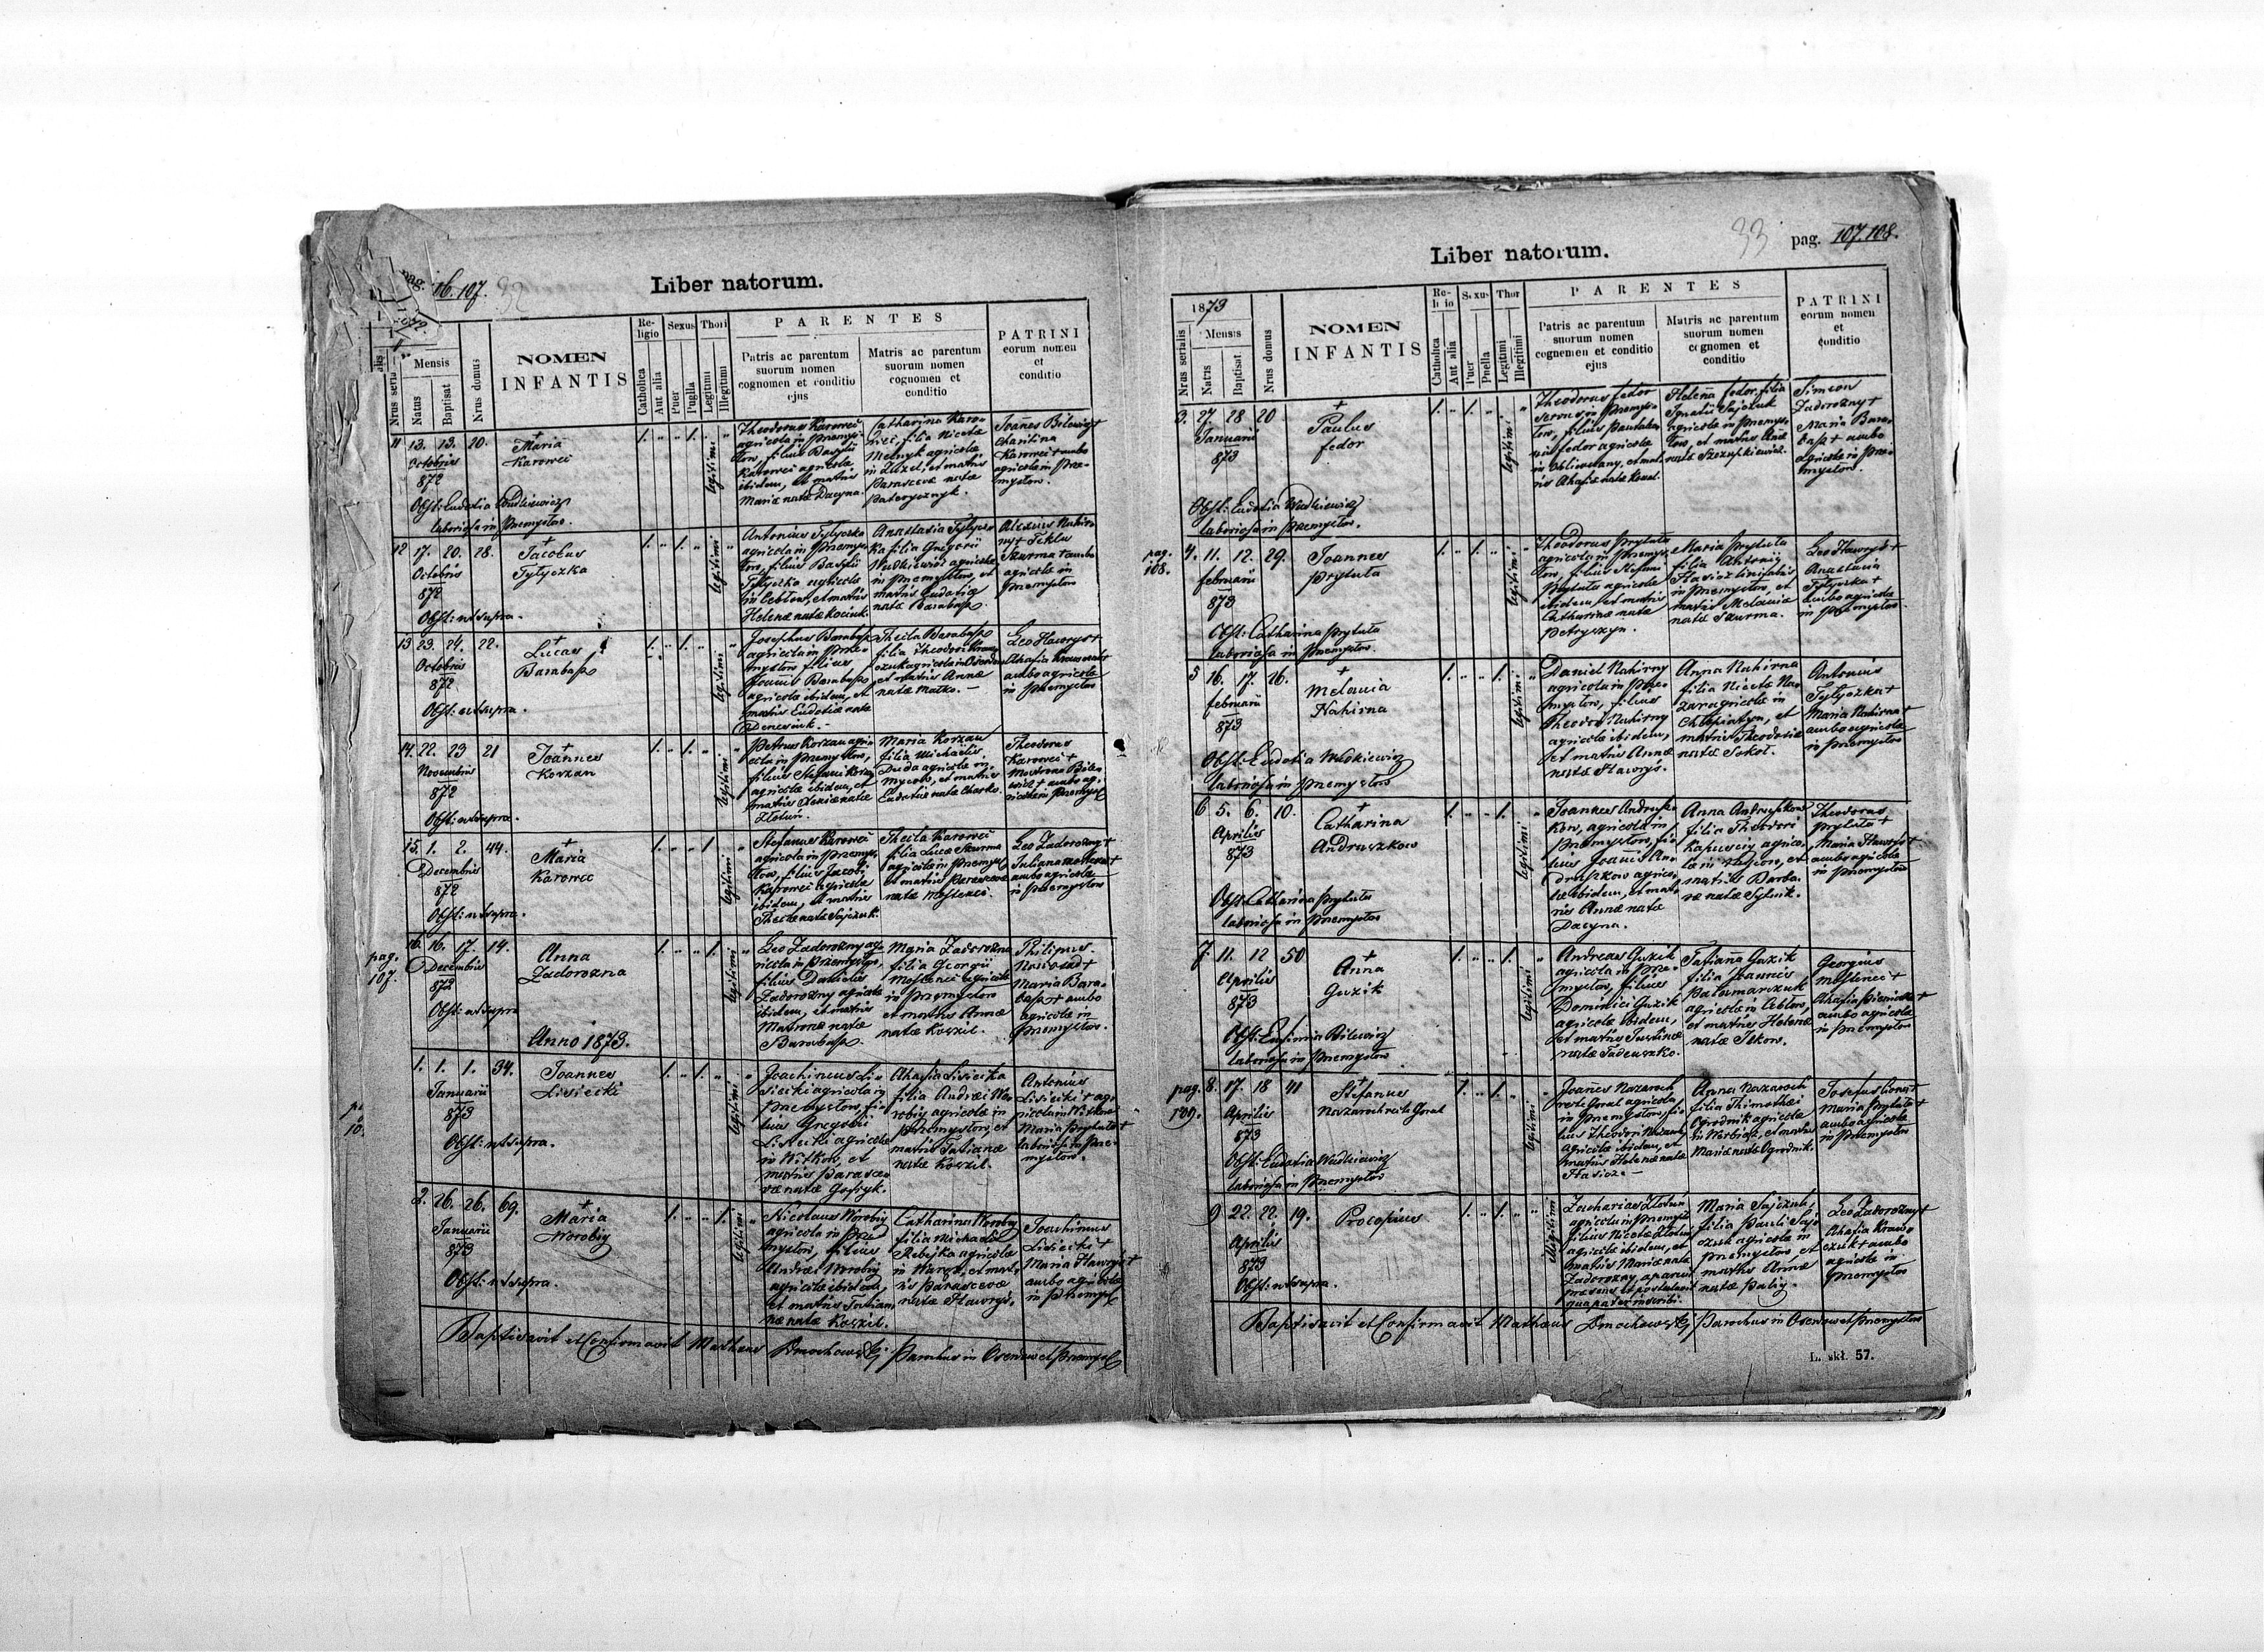 pag. 106. 107. 32
Liber natorum.
Nrus serialis
Mensis
Natus
Baptisat
Nrus domus
NOMEN
INFANTIS
Religio
Catholica
Aut alia
Sexus
Puer
Puella
Thori
Legitimi
Illegitimi
PARENTES
Patris ac parentum
suorum nomen
cognomen et conditio
ejus
Matris ac parentum
suorum nomen
cognomen et
conditio
PATRINI
eorum nomen
et
conditio
11 13. 13. 20.
Octobris
872
+
Maria
Karowci
legitimi
Theodorus Karowci
agricola in Przemys-
łow, filius Basylii
Karowci agricolæ
ibidem, et matris
Mariæ natæ Dacyna.
Catharina Karo-
wci, filia Nicetæ
Melnyk agricolæ
et matris
Parascevæ natæ
Joannes Bilewicz +
Charitina
Karowci + ambo
agricolæ in Prze-
mysłow.
Obst: Eudotia Wudkiewicz
laboriosa in Przemysłow.
12 17. 20. 28.
Octobris
872
+
Jacobus
Tytyczka
legitimi
Antonius Tytyczka
agricola in Przemys-
łow, filius Basylii
Tytyczka agricolæ
in Cebłow, et matris
Helenæ natæ Kociuk.
Anastasia Tytycz-
ka filia Gregorii
Wudkiewicz agricolæ
in Przemysłow, et
matris Eudotiæ
natæ Barabasz.
Alexius Nahir-
ny + Tekla
Szurma + ambo
agricolæ in
Przemysłow
Obst: ut supra.
13 23. 24. 22.
Octobris
872
+
Lucas
Barabasz
legitimi
Josephus Barabasz
agricola in Prze-
mysłow filius
Joannis Barabasz
agricolæ ibidem, et
matris Eudotiæ natæ
Denesiuk.
Thecla Barabasz
filia Theodori
et matris Annæ
natæ Matko.
Leo Hawryś +
Ahafia
ambo agricolæ
in Przemysłow
Obst: ut supra.
14. 22. 23 21
Novembris
872
+
Joannes
Korzan
legitimi
Petrus Korzan agri-
cola in Przemysłow,
filius Stefani Korzan
agricolæ ibidem, et
matris Xeniæ natæ
Złotuń.
Maria Korzan
filia Michaëlis
Duda agricolæ in
Mycow, et matris
Eudotiæ natæ Charko.
Theodorus
Karowci +
Matrona Bile-
wicz + ambo ag-
ricolæ in Przemysł
Obst: ut supra.
15. 1. 2. 44.
Decembris
872
+
Maria
Karowci
legitimi
Stefanus Karowci
agricola in Przemys-
łow, filius Jacobi
Karowci agricolæ
ibidem, et matris
Theclæ natæ Sajczuk.
Thecla Karowci
filia Lucæ Szurma
agricolæ in Przemysł
et matris Parascevæ
natæ Mostenci.
Leo Zadorozny +
Juliana
ambo agricolæ
in Przemysłow
Obst: ut supra.
pag.
107.
16. 16. 17. 14.
Decembris
872
Anna
Zadorozna
legitimi
Leo Zadorozny ag-
ricola in Przemysłow,
filius Danielis
Zadorozny agricolæ
ibidem, et matris
Matronæ natæ
Barabasz.
Maria Zadorozna
filia Georgii
Mostenci agricolæ
in Przemysłow
et matris Annæ
natæ Koszil.
Philipus
+
Maria Bara-
basz + ambo
agricolæ in
Przemysłow.
Obst: ut supra
Anno 1873.
1. 1. 1. 34.
Januarii
873
Joannes
Lisiecki
legitimi
Joachimus Li-
siecki agricola in
Przemysłow, fi-
lius Gregorii
Lisiecki agricolæ
in Witkow, et
matris Parasce-
væ natæ
Ahafia Lisiecka
filia Andræi Wo-
robiy agricolæ in
Przemysłow, et
matris Tatianæ
natæ Koszil.
Antonius
Lisiecki + agri-
cola in Witkow
Maria Prytuła +
laboriosa in Prze-
mysłow.
Obst: ut supra.
2. 26. 26. 69.
Januarii
873
+
Maria
Worobiy
legitimi
Nicolaus Worobiy
agricola in Prze-
mysłow, filius
Andræi Worobiy
agricolæ ibidem,
et matris Tatian-
næ natæ Koszil.
Catharina Worobiy
filia Michaëlis
Rebejka agricolæ
in Waręż, et mat-
ris Parascevæ
natæ Hawryś.
Joachimus
Lisiecki +
Maria Hawryś +
ambo agricolæ
in Przemysł
Obst: ut supra.
Baptisavit et Confirmavit Mathæus Dmochowski Parochus in Oserdow et Przemysł
33 pag. 107. 108.
Liber natorum.
1873
Nrus serialis
Mensis
Natus
Baptisat
Nrus domus
NOMEN
INFANTIS
Religio
Catholica
Aut alia
Sexus
Puer
Puella
Thor
Legitimi
Illegitimi
PARENTES
Patris ac parentum
suorum nomen
cognomen et conditio
ejus
Matris ac parentum
suorum nomen
cognomen et
conditio
PATRINI
eorum nomen
et
conditio
3. 27. 28 20
Januarii
873
+
Paulus
Fedor
legitimi
Theodorus Fedor
servus in Przemys-
łow, filius
Fedor agricolæ
et mat-
ris Ahafiæ natæ
Helena Fedor, filia
Ignatii Sajczuk
agricolæ in Przemys-
łow, et matris Annæ
natæ Szczupkiewicz.
Simeon
Zadorozny +
Maria Bara-
basz + ambo
agricolæ in Prze-
mysłow.
Obst: Eudotia Wudkiewicz
laboriosa in Przemysłow.
pag.
108.
4. 11. 12. 29.
Februarii
873
Joannes
Prytuła
legitimi
Theodorus Prytuła
agricola in Przemys-
łow, filius Stefani
Prytuła agricolæ
ibidem, et matris
Catharinæ natæ
Petryszyn.
Maria Prytuła
filia Antonii
in Przemysłow, et
matris Melaniæ
natæ Szurma.
Leo Hawryś +
Anastasia
Tytyczka +
ambo agricolæ
in Przemysłow
Obst: Catharina Prytuła
laboriosa in Przemysłow.
5 16. 17. 26.
Februarii
873
+
Melania
Nahirna
legitimi
Daniel Nahirny
agricola in Prze-
mysłow, filius
Theodori Nahirny
agricolæ ibidem,
et matris Annæ
natæ Hawryś.
Anna Nahirna
filia Nicetæ Na-
zar agricolæ in
Chłopiatyn, et
matris Theodosiæ
natæ Sokoł.
Antonius
Tytyczka +
Maria Nahirna +
ambo agricolæ
in Przemysłow
Obst: Eudotia Wudkiewicz
laboriosa in Przemysłow
6 5. 6. 10.
Aprilis
873
+
Catharina
Andruszkow
legitimi
Joannes Andrusz-
kow, agricola in
Przemysłow, fi-
lius Joannis An-
druszkow agrico-
læ ibidem, et mat-
ris Annæ natæ
Dacyna.
Anna Andruszkow
filia Theodori
Kapusciy agrico-
læ in et
matris Barba-
ræ natæ Sytnik.
Theodorus
Prytuła +
Maria Hawryś +
ambo agricolæ
in Przemysłow
Obst: Catharina Prytuła
laboriosa in Przemysłow
7. 11. 12 50
Aprilis
873
+
Anna
Guzik
legitimi
Andreas Guzik
agricola in Prze-
mysłow, filius
Dominici Guzik
agricolæ ibidem,
et matris Justinæ
natæ Tadeuszko.
Tatiana Guzik
filia Joannis
Pałamarczuk
agricolæ in Cebłow,
et matris Helenæ
natæ Ilkow.
Georgius
Mostenci +
Ahafia
ambo agricolæ
in Przemysłow
Obst: Eufimia Bilewicz
laboriosa in Przemysłow
pag.
109.
8. 17. 18 41
Aprilis
873
+
Stefanus
Nazaroch recte Goral
legitimi
Joannes Nazaroch
recte Goral agricola
in Przemysłow, fi-
lius Theodori Nazaroch
agricolæ ibidem, et
matris Helenæ natæ
Anna Nazaroch
filia Thimothæi
Ogrodnik agricolæ
in Worbiąż, et matris
Mariæ natæ Ogrodnik.
Josefus +
Maria Prytuła +
ambo agricolæ
in Przemysłow
Obst: Eudotia Wudkiewicz
laboriosa in Przemysłow
9 22. 22. 19.
Aprilis
873
Procopius
illegitimi
Zacharias Złotuń
agricola in Przemysł
filius Nicetæ Złotuń
agricolæ ibidem, et
matris Mariæ natæ
Zadorozny, aparuit
præsens et postulavit
qua pater inscribi.
Maria Sajczuk,
filia Pauli Saj-
czuk agricolæ in
Przemysłow, et
matris Annæ
natæ Paliy.
Leo Zadorozny +
Ahafia Krawo-
czuk + ambo
agricolæ in
Przemysłow
Obst: ut supra.
Baptisavit et Confirmavit Mathæus Dmochowski Parochus in Oserdow et Przemysłow
L. skł. 57.